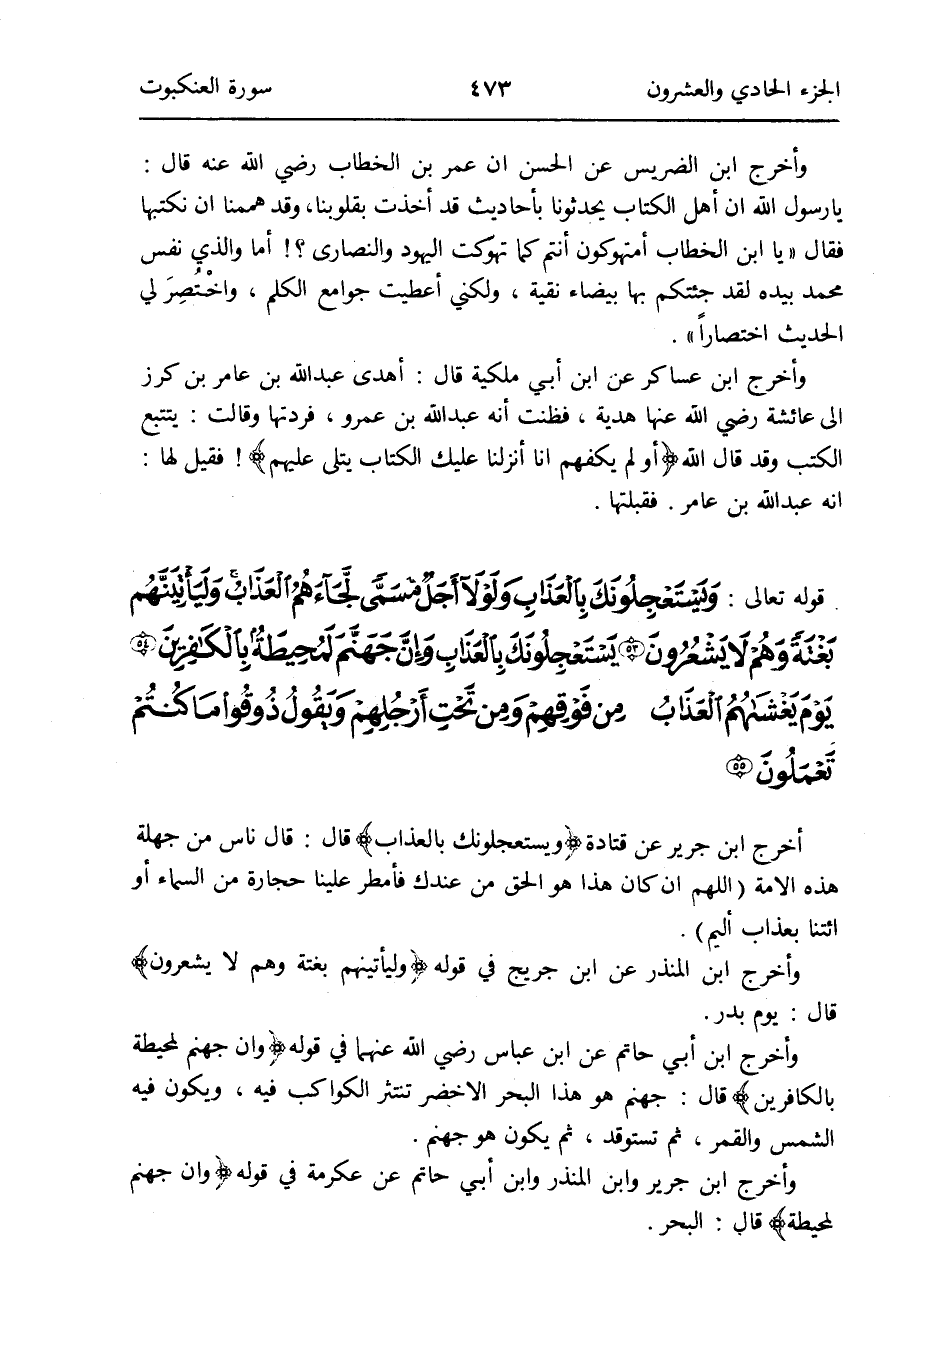 الجزء الحادي والعشرون ٤٧٣ سورة العنكبوت
وأخرج ابن الضريس عن الحسن ان عمر بن الخطاب رضي الله عنه قال :
يارسول الله ان أهل الكتاب يحدثونا بأحاديث قد أخذت بقلوبنا، وقد هممنا ان نكتبها
فقال « يا ابن الخطاب أمتهوكون أنتم كما تهوّكت اليهود والنصارى ؟! أما والذي نفس
محمد بيده لقد جئتكم بها بيضاء نقية ، ولكني أعطيت جوامع الكلم ، واخْتُصِرَ لي
الحديث اختصاراً » .
وأخرج ابن عساكر عن ابن أبي ملكية قال : أهدى عبدالله بن عامر بن كرز
الى عائشة رضي الله عنها هدية ، فظنت أنه عبدالله بن عمرو ، فردتها وقالت : يتتبع
الكتب وقد قال الله ﴿أو لم يكفهم انا أنزلنا عليك الكتاب يتلى عليهم﴾ ! فقيل لها :
انه عبدالله بن عامر . فقبلتها .
قوله تعالى : وَيَسْتَعْجِلُونَكَ بِالْعَذَابِ وَلَوْلَا أَجَلٌ مُّسَمًّى لَّجَاءَهُمُ الْعَذَابُ ۚ وَلَيَأْتِيَنَّهُم
بَغْتَةً وَهُمْ لَا يَشْعُرُونَ ٥٣ يَسْتَعْجِلُونَكَ بِالْعَذَابِ وَإِنَّ جَهَنَّمَ لَمُحِيطَةٌ بِالْكَٰفِرِينَ ٥٤
يَوْمَ يَغْشَىٰهُمُ الْعَذَابُ مِن فَوْقِهِمْ وَمِن تَحْتِ أَرْجُلِهِمْ وَيَقُولُ ذُوقُوا مَا كُنتُمْ
تَعْمَلُونَ ٥٥
أخرج ابن جرير عن قتادة ﴿ويستعجلونك بالعذاب﴾ قال : قال ناس من جهلة
هذه الامة (اللهم ان كان هذا هو الحق من عندك فأمطر علينا حجارة من السماء أو
ائتنا بعذاب أليم) .
وأخرج ابن المنذر عن ابن جريج في قوله ﴿وليأتينهم بغتة وهم لا يشعرون﴾
قال : يوم بدر .
وأخرج ابن أبي حاتم عن ابن عباس رضي الله عنهما في قوله ﴿وان جهنم لمحيطة
بالكافرين﴾ قال : جهنم هو هذا البحر الاخضر تنتثر الكواكب فيه ، ويكون فيه
الشمس والقمر ، ثم تستوقد ، ثم يكون هو جهنم .
وأخرج ابن جرير وابن المنذر وابن أبي حاتم عن عكرمة في قوله ﴿وان جهنم
لمحيطة﴾ قال : البحر .